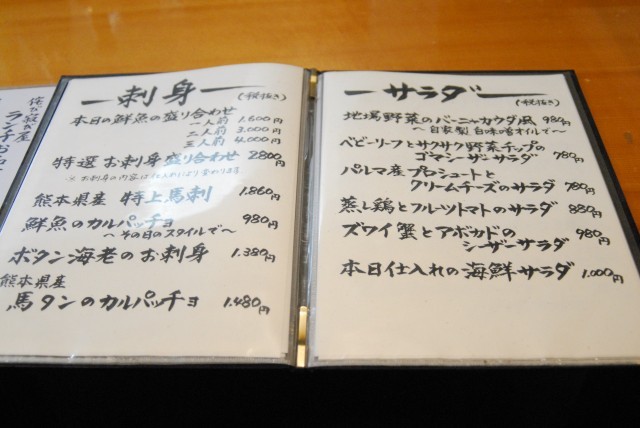 一刺身一
(税抜き)
本日の鮮魚の盛り合わせ
一人前 1.600円
二人前 3.000円
三人前 4.000円
特選 お刺身盛り合わせ 2800円
※お刺身の内容は仕入れにより変わります
熊本県産 特上馬刺 1.860円
鮮魚のカルパッチョ 980円
～その日のスタイルで～
ボタン海老のお刺身 1.380円
熊本県産
馬タンのカルパッチョ 1.480円
一サラダ一
(税抜き)
地場野菜のバーニャカウダ風 980円
～自家製 白味噌オイルで～
ベビーリーフとサクサク野菜チップの
ゴマシーザーサラダ 780円
パルマ産プロシュートと
クリームチーズのサラダ 780円
蒸し鶏とフルーツトマトのサラダ 880円
ズワイ蟹とアボカドの
シーザーサラダ 980円
本日仕入れの海鮮サラダ 1.000円